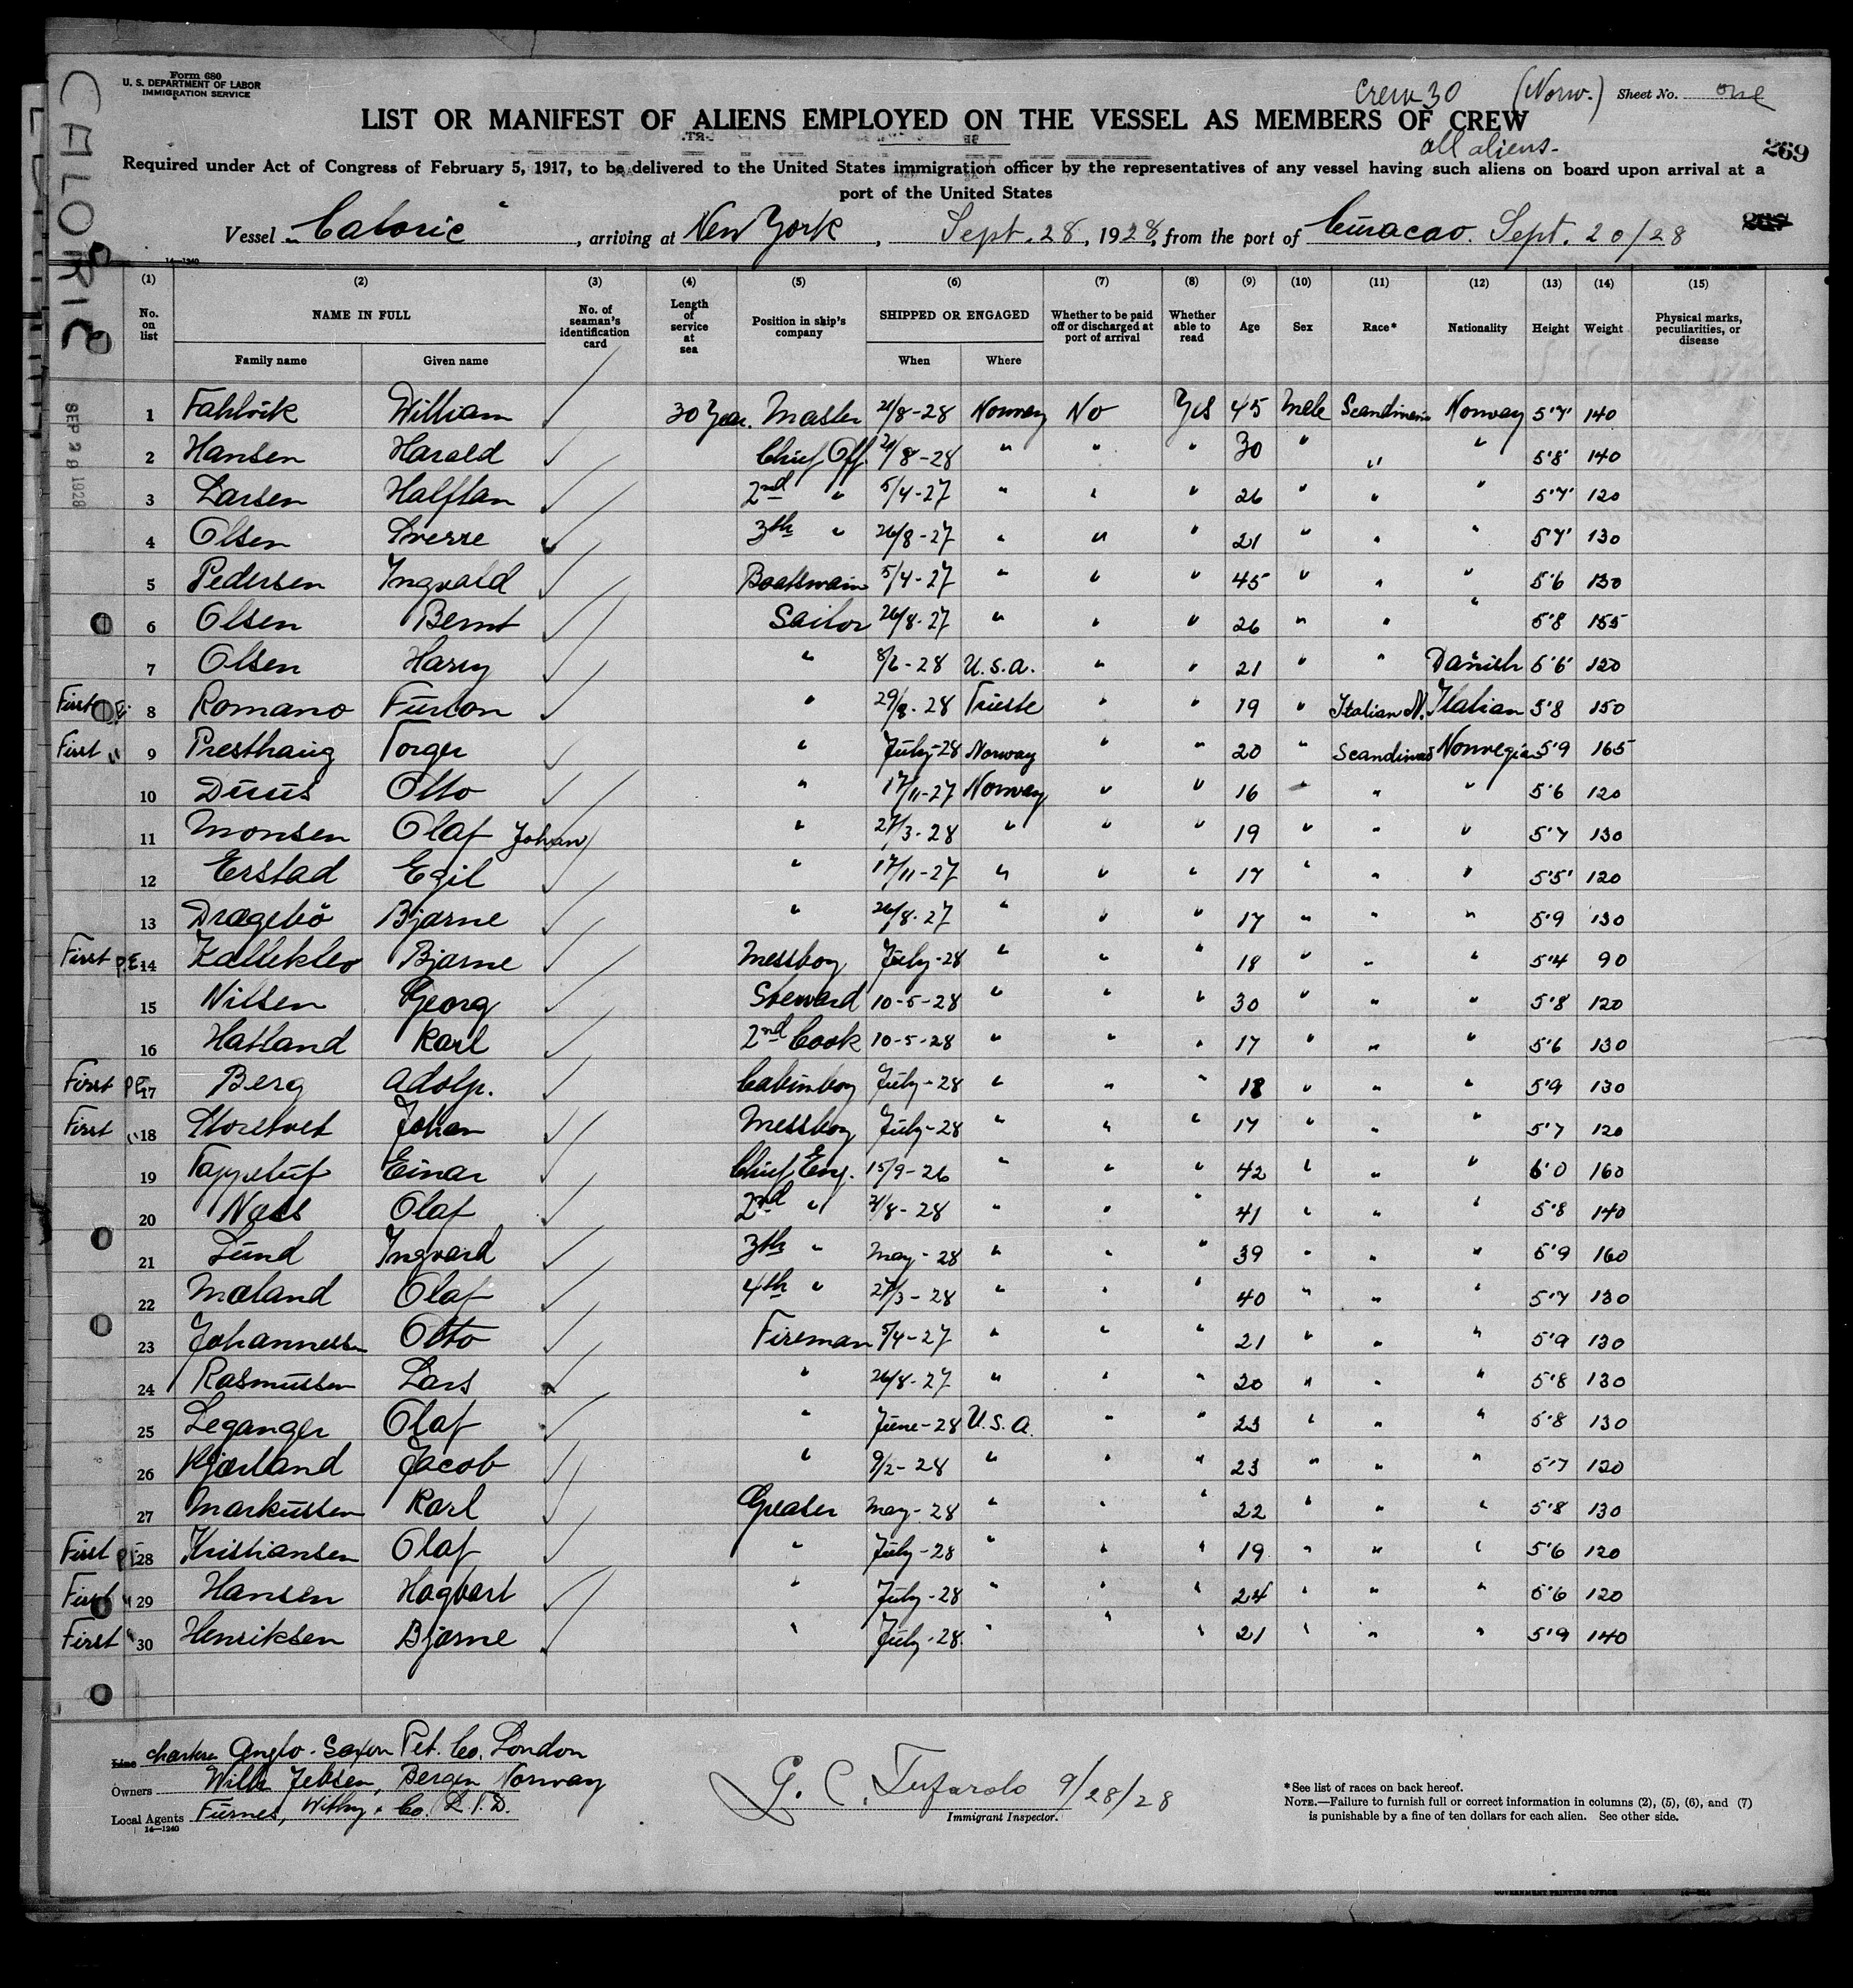 Form 680
U. S. DEPARTMENT OF LABOR
IMMIGRATION SERVICE
CALORIC
Crew 30 (Norw.) Sheet No. one
LIST OR MANIFEST OF ALIENS EMPLOYED ON THE VESSEL AS MEMBERS OF CREW
all aliens-
269
Required under Act of Congress of February 5, 1917, to be delivered to the United States immigration officer by the representatives of any vessel having such aliens on board upon arrival at a
port of the United States
Vessel Caloric, arriving at New York, Sept. 28, 1928, from the port of Curacao. Sept. 20/28
14—1240
(1) (2) (3) (4) (5) (6) (7) (8) (9) (10) (11) (12) (13) (14) (15)
No. on list NAME IN FULL No. of seaman's identification card Length of service at sea Position in ship's company SHIPPED OR ENGAGED Whether to be paid off or discharged at port of arrival Whether able to read Age Sex Race* Nationality Height Weight Physical marks, peculiarities, or disease
Family name Given name When Where
SEP 28 1928
1 Fahlvik William 30 Year. Master 21/8-28 Norway No Yes 45 Male Scandinavia Norway 5'7' 140
2 Hansen Harald Chief Off. 21/8-28 " " " 30 " " " 5'8' 140
3 Larsen Halfdan 2nd " 5/4-27 " " " 26 " " " 5'7' 120
4 Olsen Sverre 3th " 26/8-27 " " " 21 " " " 5'7' 130
5 Pedersen Ingvald Boatswain 5/4-27 " " " 45 " " " 5'6 130
6 Olsen Bernt Sailor 26/8-27 " " " 26 " " " 5'8 155
7 Olsen Harry " 8/2-28 U.S.A. " " 21 " " Danish 5'6' 120
First P.E. 8 Romano " 28 Trieste " " 19 " Italian N. Italian 5'8 150
First " 9 Presthaug Torger " July-28 Norway " " 20 " Scandinav Norwegian 5'9 165
10 Duus Otto " 17/11-27 Norway " " 16 " " " 5'6 120
11 Monsen Olaf Johan " 27/3-28 " " " 19 " " " 5'7 130
12 Erstad Egil " 17/11-27 " " " 17 " " " 5'5' 120
13 Dragebö Bjarne " 26/8-27 " " " 17 " " " 5'9 130
First P.E. 14 Kallekleo Bjarne Messboy July-28 " " " 18 " " " 5'4 90
15 Nilsen Georg Steward 10-5-28 " " " 30 " " " 5'8 120
16 Hatland Karl 2nd Cook 10-5-28 " " " 17 " " " 5'6 130
First P.E. 17 Berg Adolp. Cabinboy July-28 " " " 18 " " " 5'9 130
First " 18 Storetvet Johan Messboy July-28 " " " 17 " " " 5'7 120
19 Tappeluf Einar Chief Eng. 15/9-26 " " " 42 " " " 6'0 160
20 Næss Olaf 2nd " 21/8-28 " " " 41 " " " 5'8 140
21 Lund Ingvard 3th " May-28 " " " 39 " " " 5'9 160
22 Mæland Olaf 4th " 27/3-28 " " " 40 " " " 5'7 130
23 Johannessen Otto Fireman 5/4-27 " " " 21 " " " 5'9 130
24 Rasmussen Lars " 26/8-27 " " " 20 " " " 5'8 130
25 Leganger Olaf " June-28 U.S.A. " " 23 " " " 5'8 130
26 Kjærland Jacob " 9/2-28 " " " 23 " " " 5'7 120
27 Markussen Karl Greaser May-28 " " " 22 " " " 5'8 130
First P.E. 28 Kristiansen Olaf " July-28 " " " 19 " " " 5'6 120
First " 29 Hansen Hagbart " July-28 " " " 24 " " " 5'6 120
First " 30 Henriksen Bjarne " July-28 " " " 21 " " " 5'9 140
Line charters Anglo-Saxon Pet. Co. London
Owners Wilh Jebsen, Bergen Norway
Local Agents Furness, Withy & Co. LTD.
14—1240
G. C. Tufarolo 9/28/28
Immigrant Inspector.
*See list of races on back hereof.
NOTE.—Failure to furnish full or correct information in columns (2), (5), (6), and (7)
is punishable by a fine of ten dollars for each alien. See other side.
GOVERNMENT PRINTING OFFICE